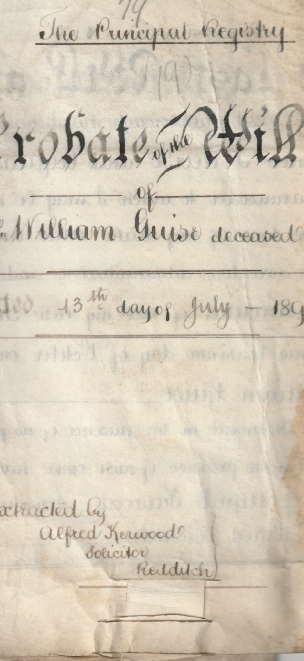 79
The Principal Registry
(9)
robate of the Will
of
William Guise deceased
13th day of July — 189
extracted by
Alfred Kerwood
Solicitor
Redditch